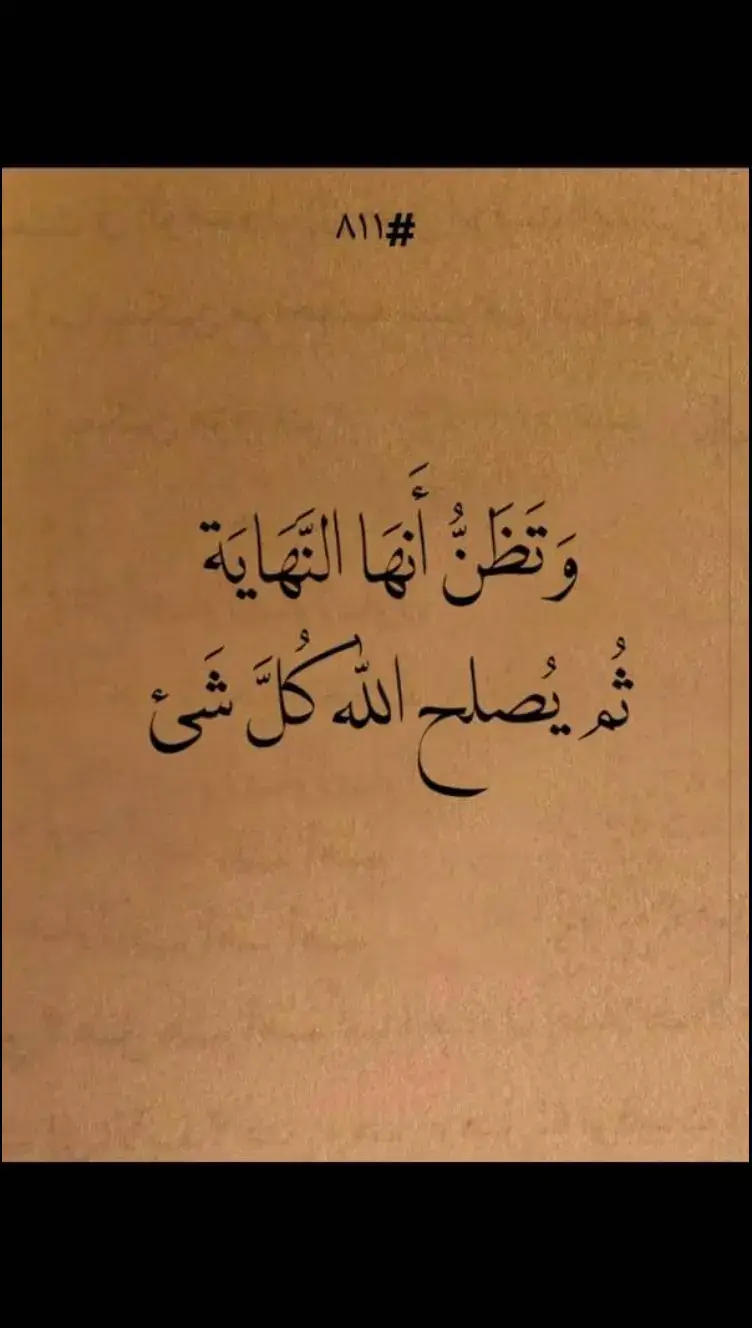 #٨١١
وَتَظَنُّ أَنهَا النَّهَايَة
ثُم يُصلح الله كُلَّ شَئ